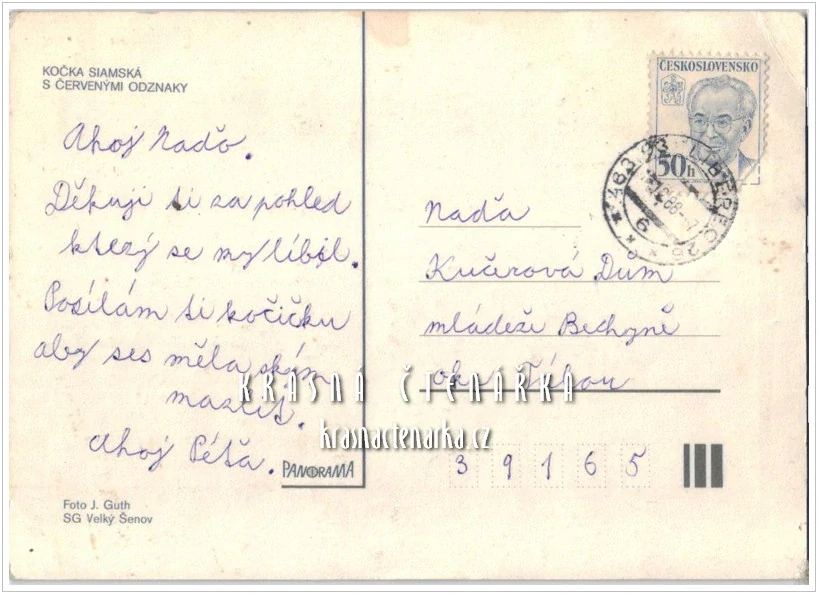 KOČKA SIAMSKÁ
S ČERVENÝMI ODZNAKY
Ahoj Naďo.
Děkuji ti za pohled
který se my líbil.
Posílám ti kočičku
aby ses měla skám
mazlit.
Ahoj Péťa.
PANORAMA
Foto J. Guth
SG Velký Šenov
ČESKOSLOVENSKO
50h
LIBEREC 25
Naďa
Kučerová Dům
mládeže Bechyně
okr. Tábor
39165
KRÁSNÁ ČTENÁŘKA
krasnactenarka.cz